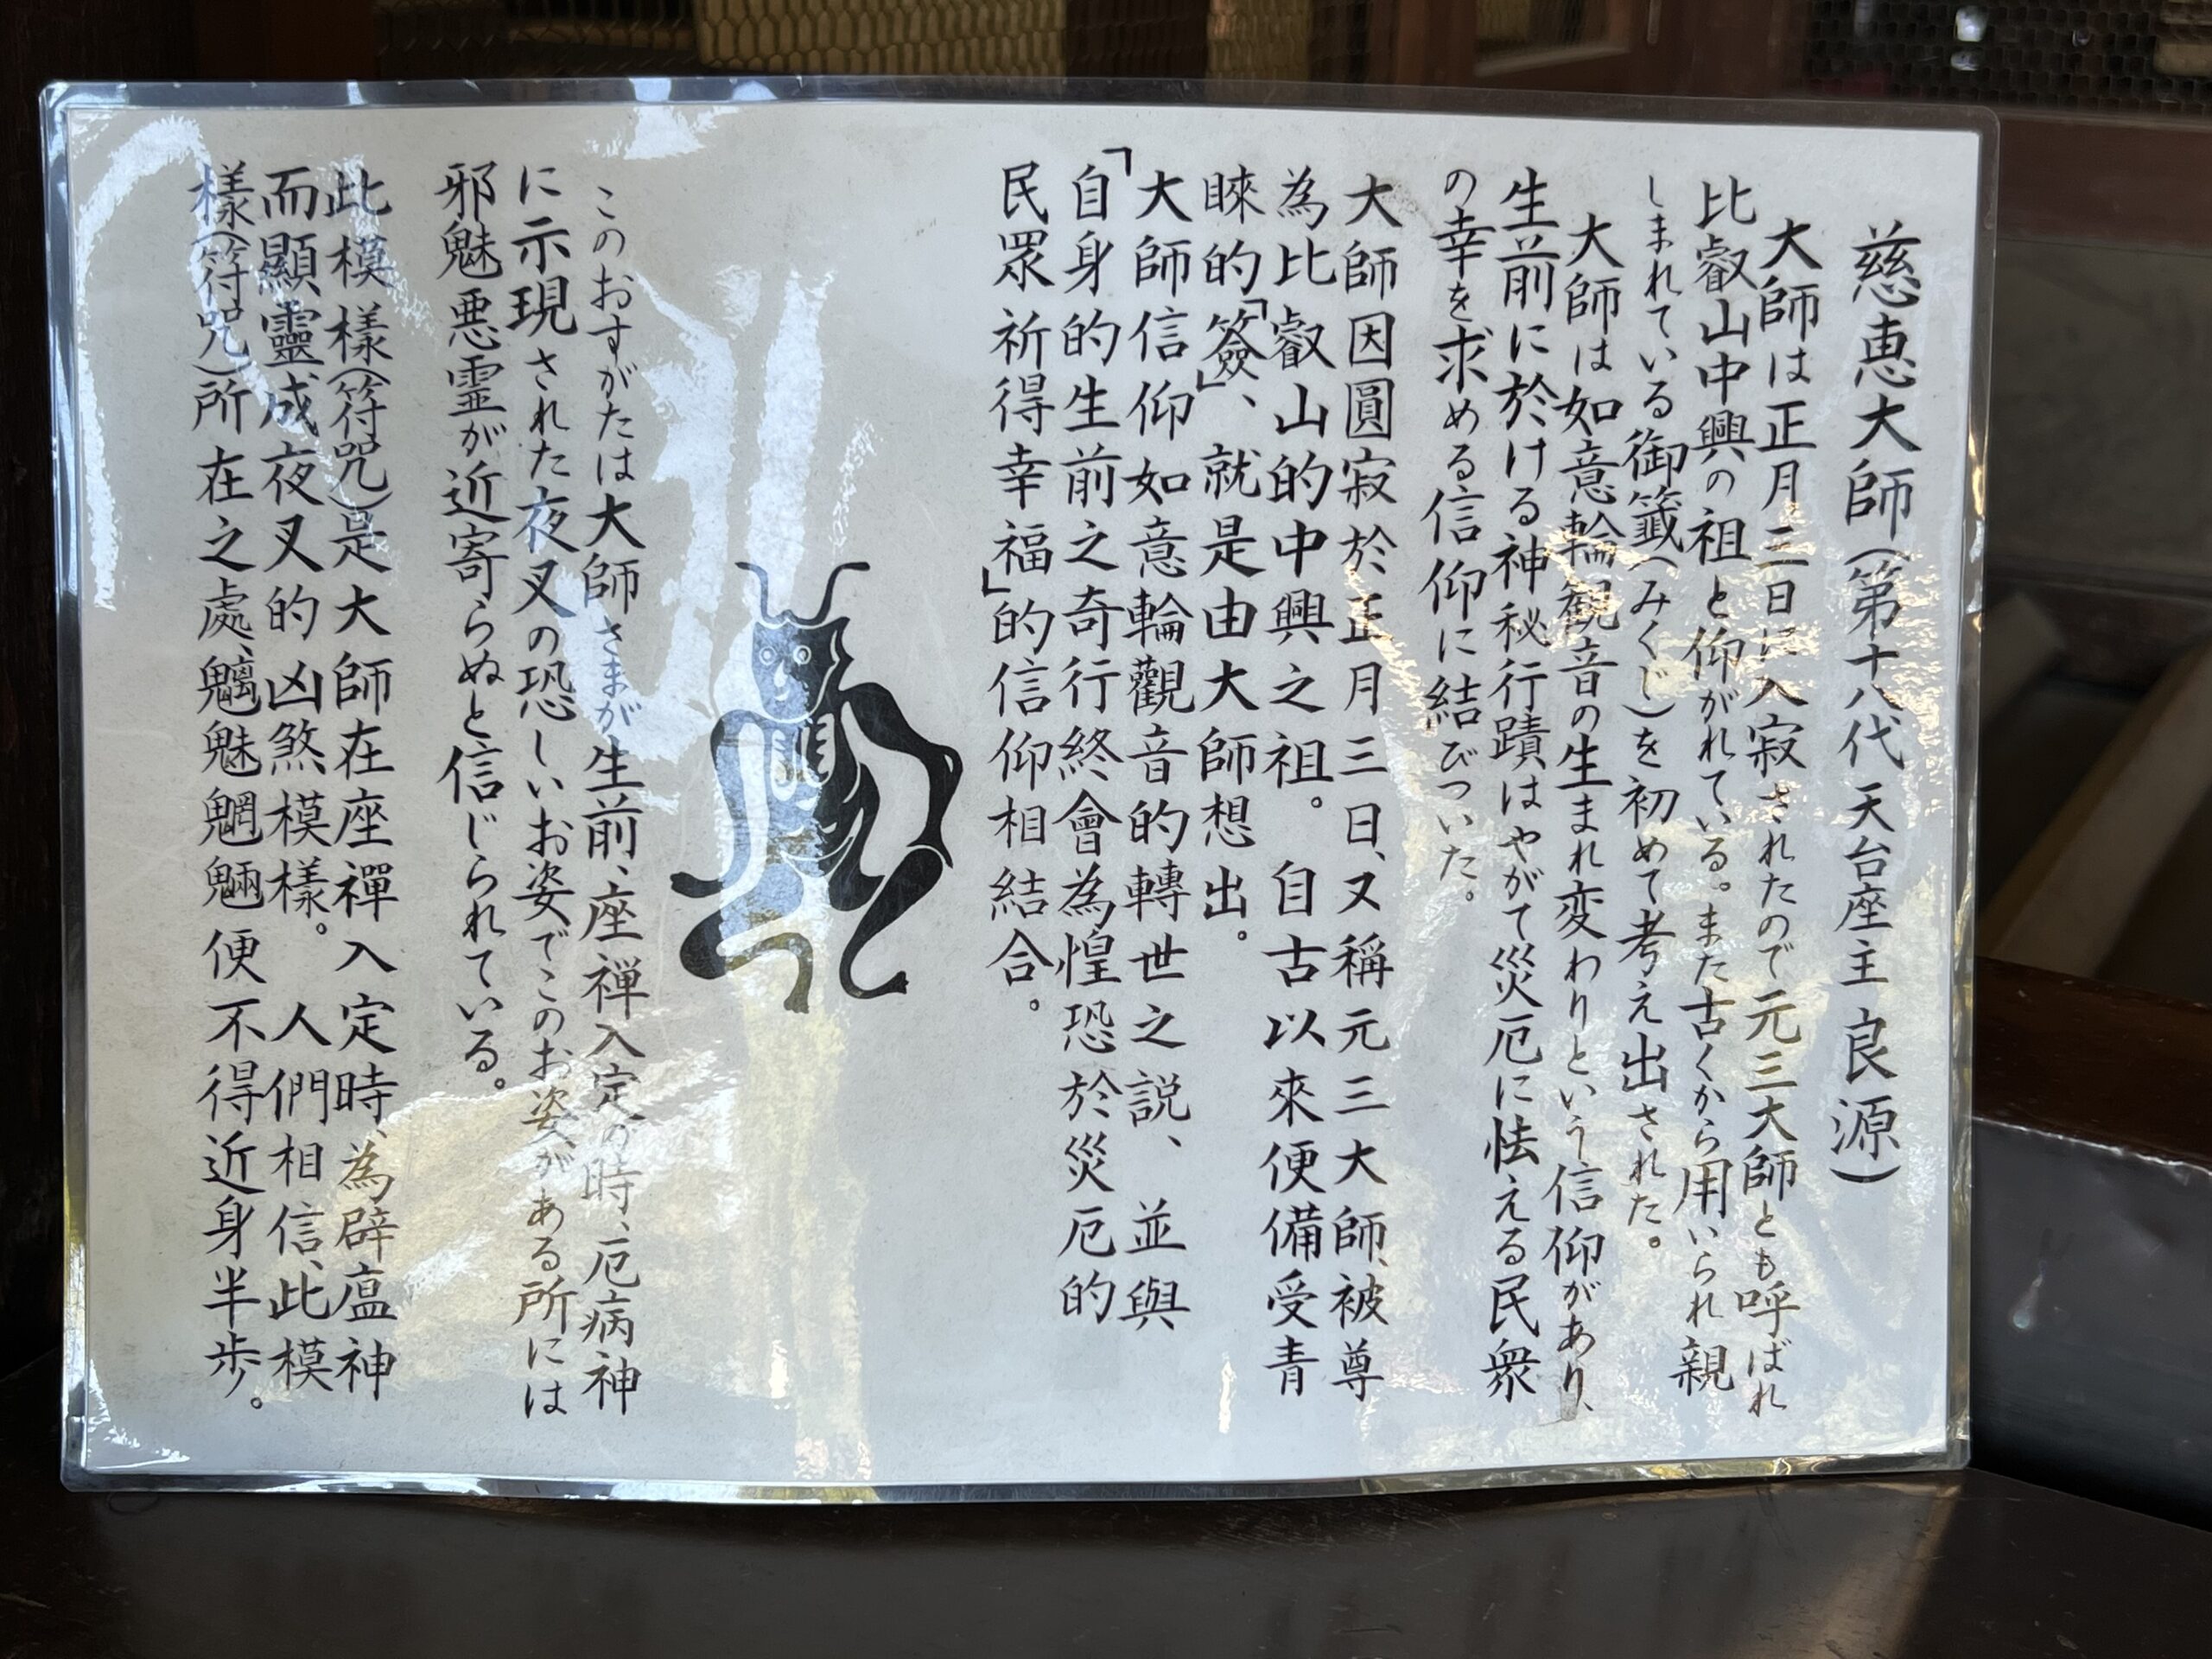 慈恵大師(第十八代 天台座主 良源)
大師は正月三日に入寂されたので元三大師とも呼ばれ
比叡山中興の祖と仰がれている。また古くから用いられ親
しまれている御籤(みくじ)を初めて考え出された。
大師は如意輪観音の生まれ変わりという信仰があり、
生前に於ける神秘行蹟はやがて災厄に怯える民衆
の幸を求める信仰に結びついた。
大師因圓寂於正月三日、又稱元三大師、被尊
為比叡山的中興之祖。自古以來便備受青
睞的「簽」、就是由大師想出。
大師信仰如意輪觀音的轉世之説、並與
「自身的生前之奇行終會為惶恐於災厄的
民眾祈得幸福」的信仰相結合。
このおすがたは大師さまが生前、座禅入定の時、厄病神
に示現された夜叉の恐しいお姿でこのお姿がある所には
邪魅悪霊が近寄らぬと信じられている。
此模樣(符咒)是大師在座禪入定時、為辟瘟神
而顯靈成夜叉的凶煞模樣。人們相信、此模
樣(符咒)所在之處、魑魅魍魎便不得近身半歩。